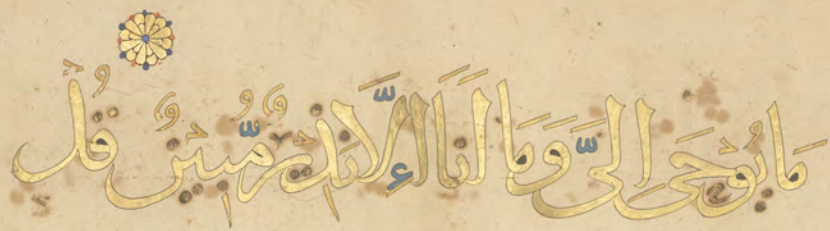 مَا يُوْحَىٰ إِلَىَّ وَمَا أَنَا۠ إِلَّا نَذِيرٌ مُّبِينٌ قُلْ